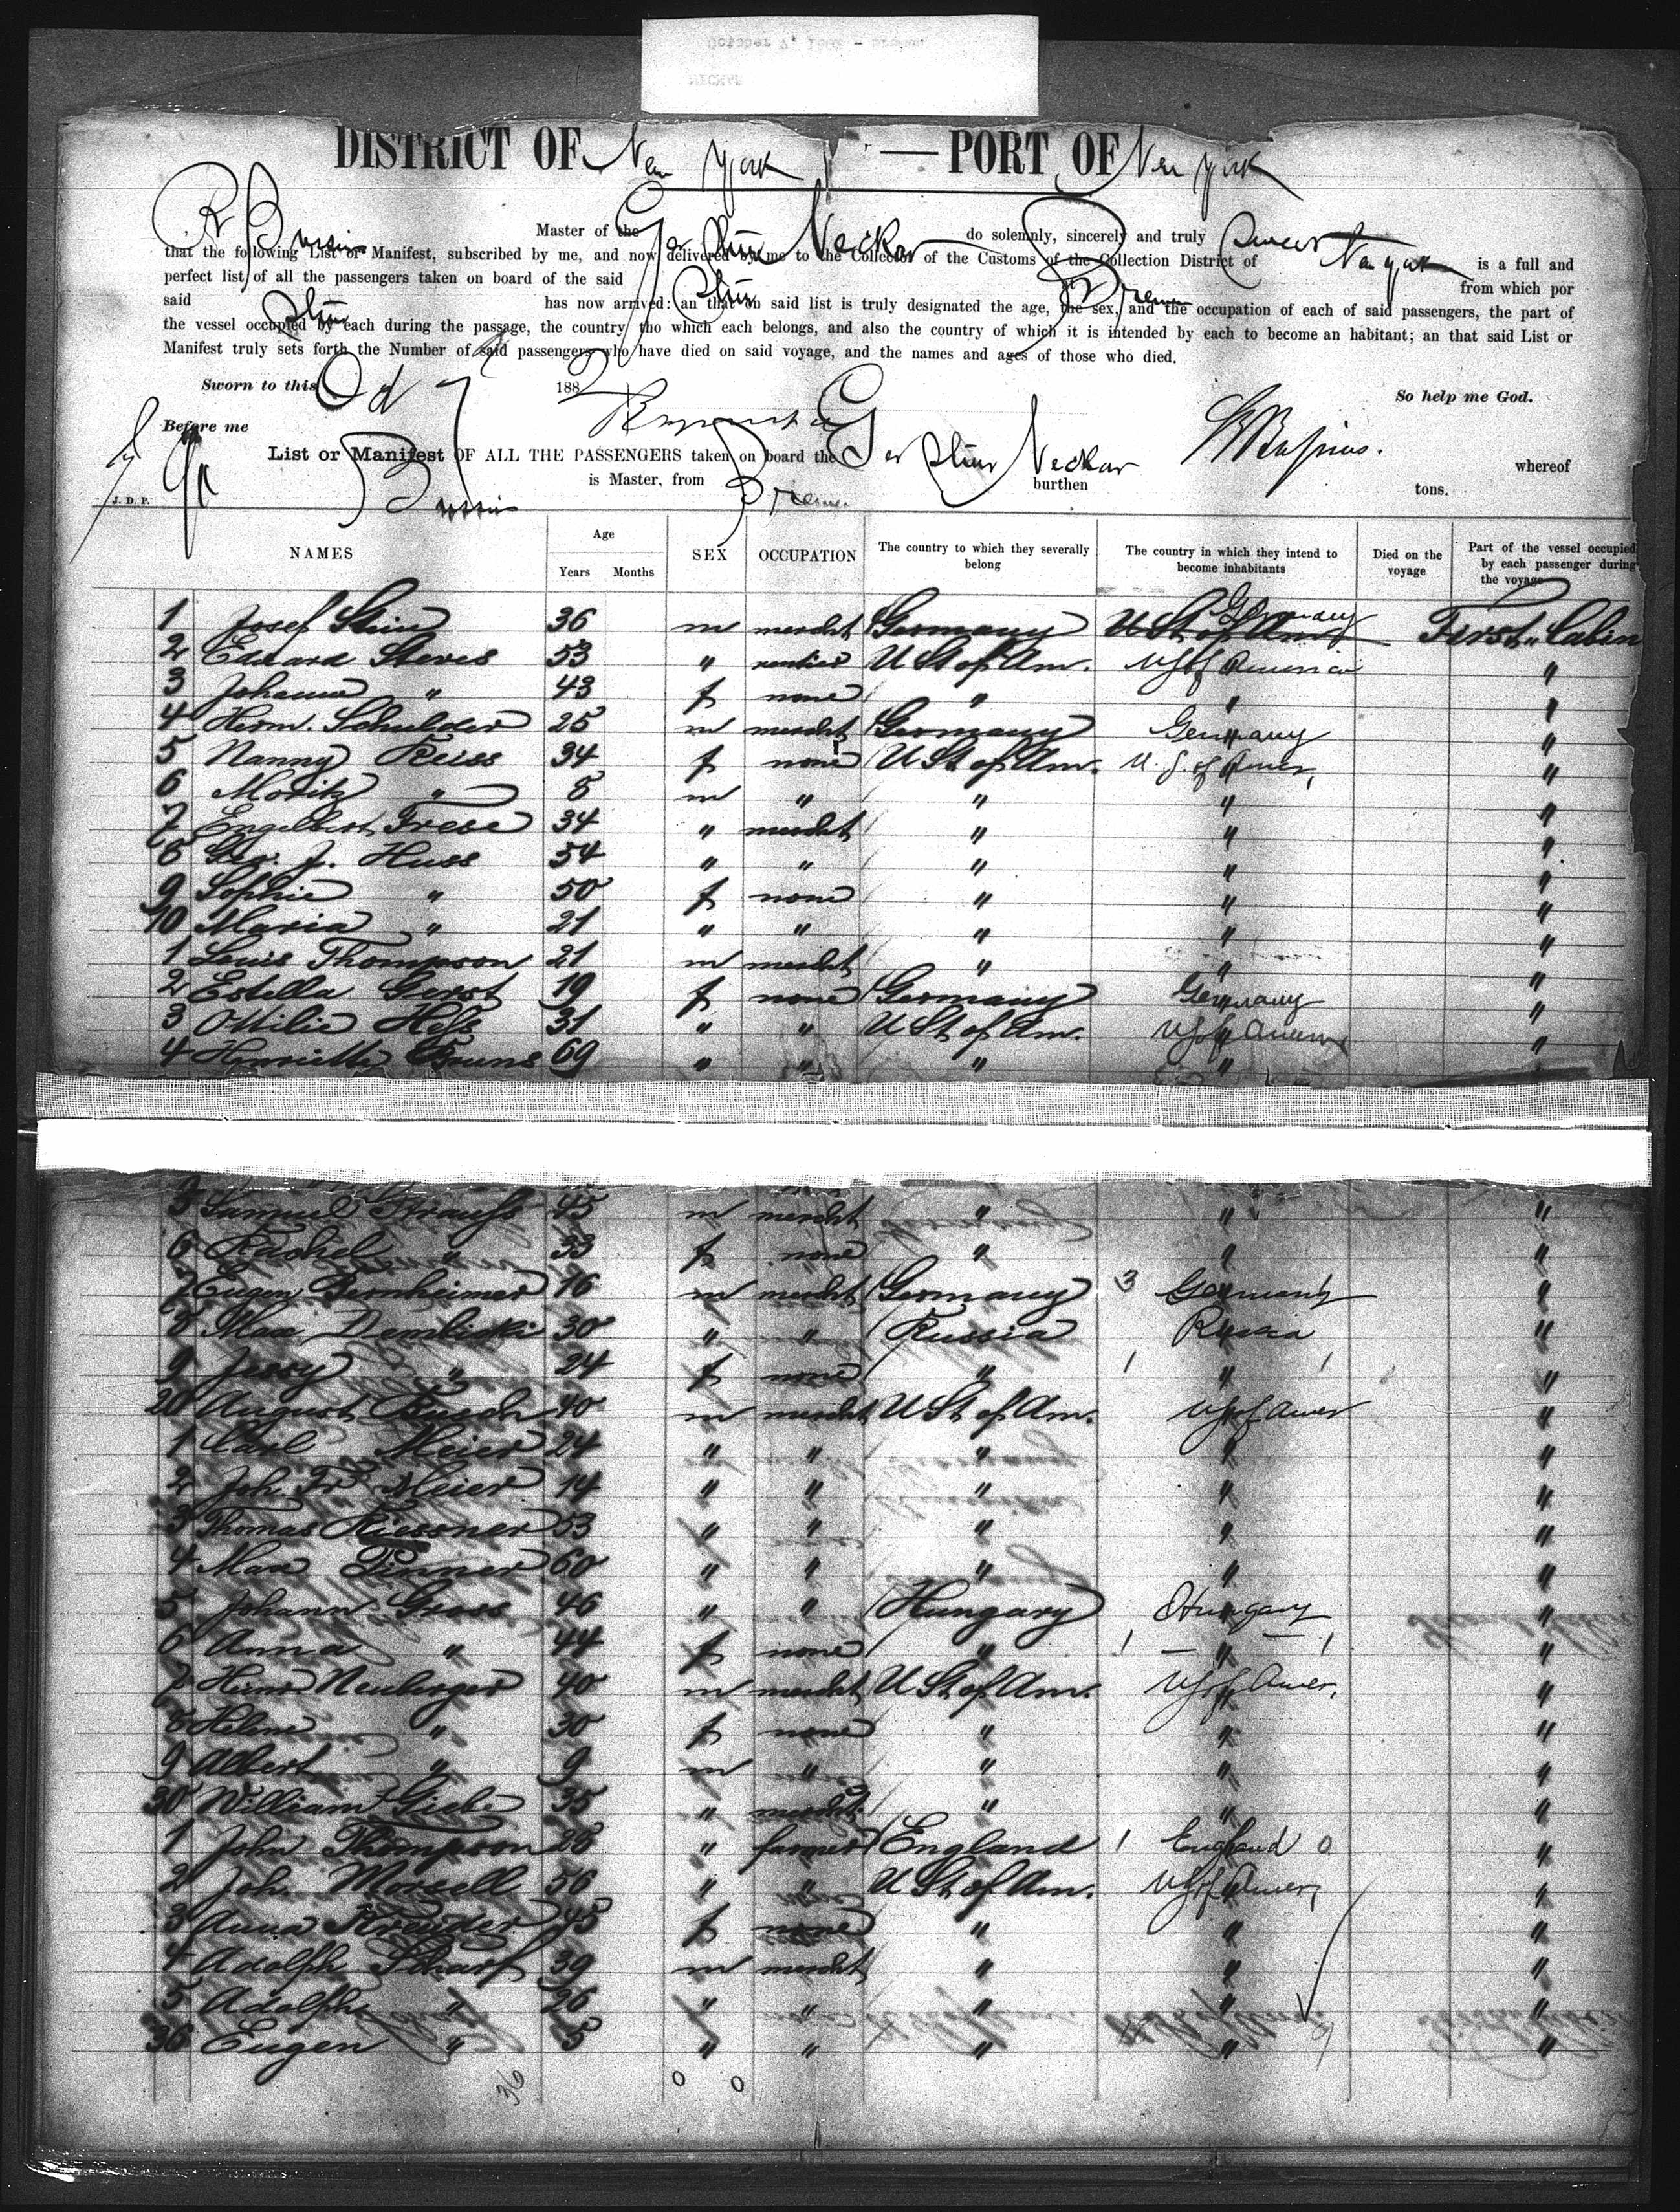 DISTRICT OF New York — PORT OF New York
R Bussius Master of the Ger Stmr Neckar do solemnly, sincerely and truly Swear
that the following List or Manifest, subscribed by me, and now delivered by me to the Collector of the Customs of the Collection District of New York is a full and
perfect list of all the passengers taken on board of the said Stmr from which por
said Stmr has now arrived: an that on said list is truly designated the age, the sex, and the occupation of each of said passengers, the part of
the vessel occupied by each during the passage, the country tho which each belongs, and also the country of which it is intended by each to become an habitant; an that said List or
Manifest truly sets forth the Number of said passengers who have died on said voyage, and the names and ages of those who died.
Sworn to this Oct 7 1882 So help me God.
Before me
List or Manifest OF ALL THE PASSENGERS taken on board the Ger Stmr Neckar whereof
Bussius is Master, from Bremen burthen tons.
J. D. P.
NAMES Age Years Months SEX OCCUPATION The country to which they severally belong The country in which they intend to become inhabitants Died on the voyage Part of the vessel occupied by each passenger during the voyage
1 Josef Stein 36 m mercht Germany U St of Am Germany First Cabin
2 Eduard Steves 53 " rentier U St of Am. US of America "
3 Johanna " 43 f none " " "
4 Herm. Schulder 25 m mercht Germany Germany "
5 Nanny Reiss 34 f none U St of Am. U. S. of Amer, "
6 Moritz " 8 m " " " "
7 Engelbert Frese 34 " mercht " " "
8 Geo. J. Huss 54 " " " " "
9 Sophie " 50 f none " " "
10 Maria " 21 " " " " "
1 Louis Thompson 21 m mercht " " "
2 Estella Gerst 19 f none Germany Germany "
3 Ottilie Hess 31 " " U St of Am. US of America "
4 Henriette Bruns 69 " " " "
5 Samuel Strauss 45 m mercht " " "
6 Rachel " 33 f none " " "
7 Eugen Bernheimer 16 m mercht Germany 3 Germany "
8 Max Dembicki 30 " " Russia Russia "
9 Jessy " 24 f none " " "
20 August Busch 40 m mercht U St of Am. US of Amer "
1 Carl Meier 24 " " " " "
2 Joh. Fr Meier 14 " " " " "
3 Thomas Riessner 53 " " " " "
4 Max Pinner 60 " " " " "
5 Johann Gross 46 " " Hungary Hungary "
6 Anna " 44 f none " " "
7 Herm Neuberger 40 m mercht U St of Am. US of Amer, "
8 Helene " 30 f none " " "
9 Albert " 9 m " " " "
30 William Giebe 35 " mercht " " "
1 John Thompson 28 " farmer England 1 England 0 "
2 Joh. Morsell 56 " " U St of Am. US of Amer, "
3 Anna Kreuder 45 f none " " "
4 Adolph Scharf 39 m mercht " " "
5 Adolph " 26 " " " " "
36 Eugen " 5 " " " " "
36 0 0